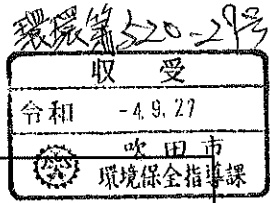 環環第520-29号
収受
令和 -4.9.27
吹田市
環境保全指導課